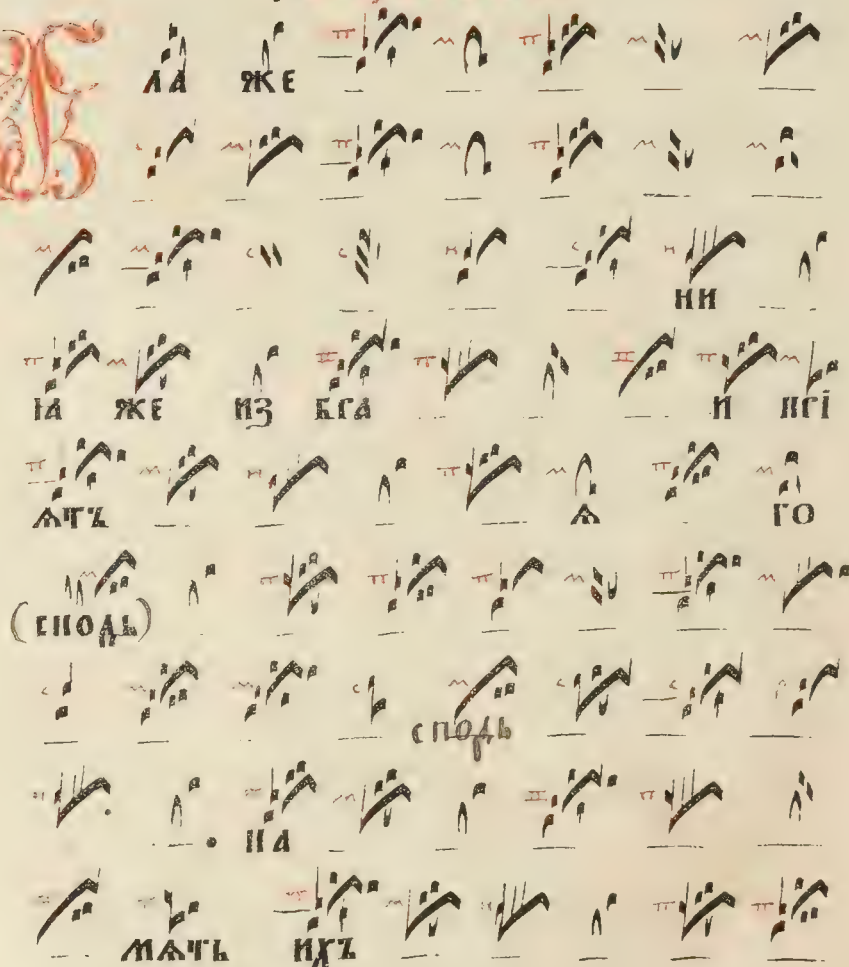 Б ЛА ЖЕ
НИ
ІА ЖЕ ИЗ БРА И ПРІ
ѦТЪ Ѧ ГО
(СПОДЬ)
СПОДЬ
ПА
МѦТЬ ИХЪ